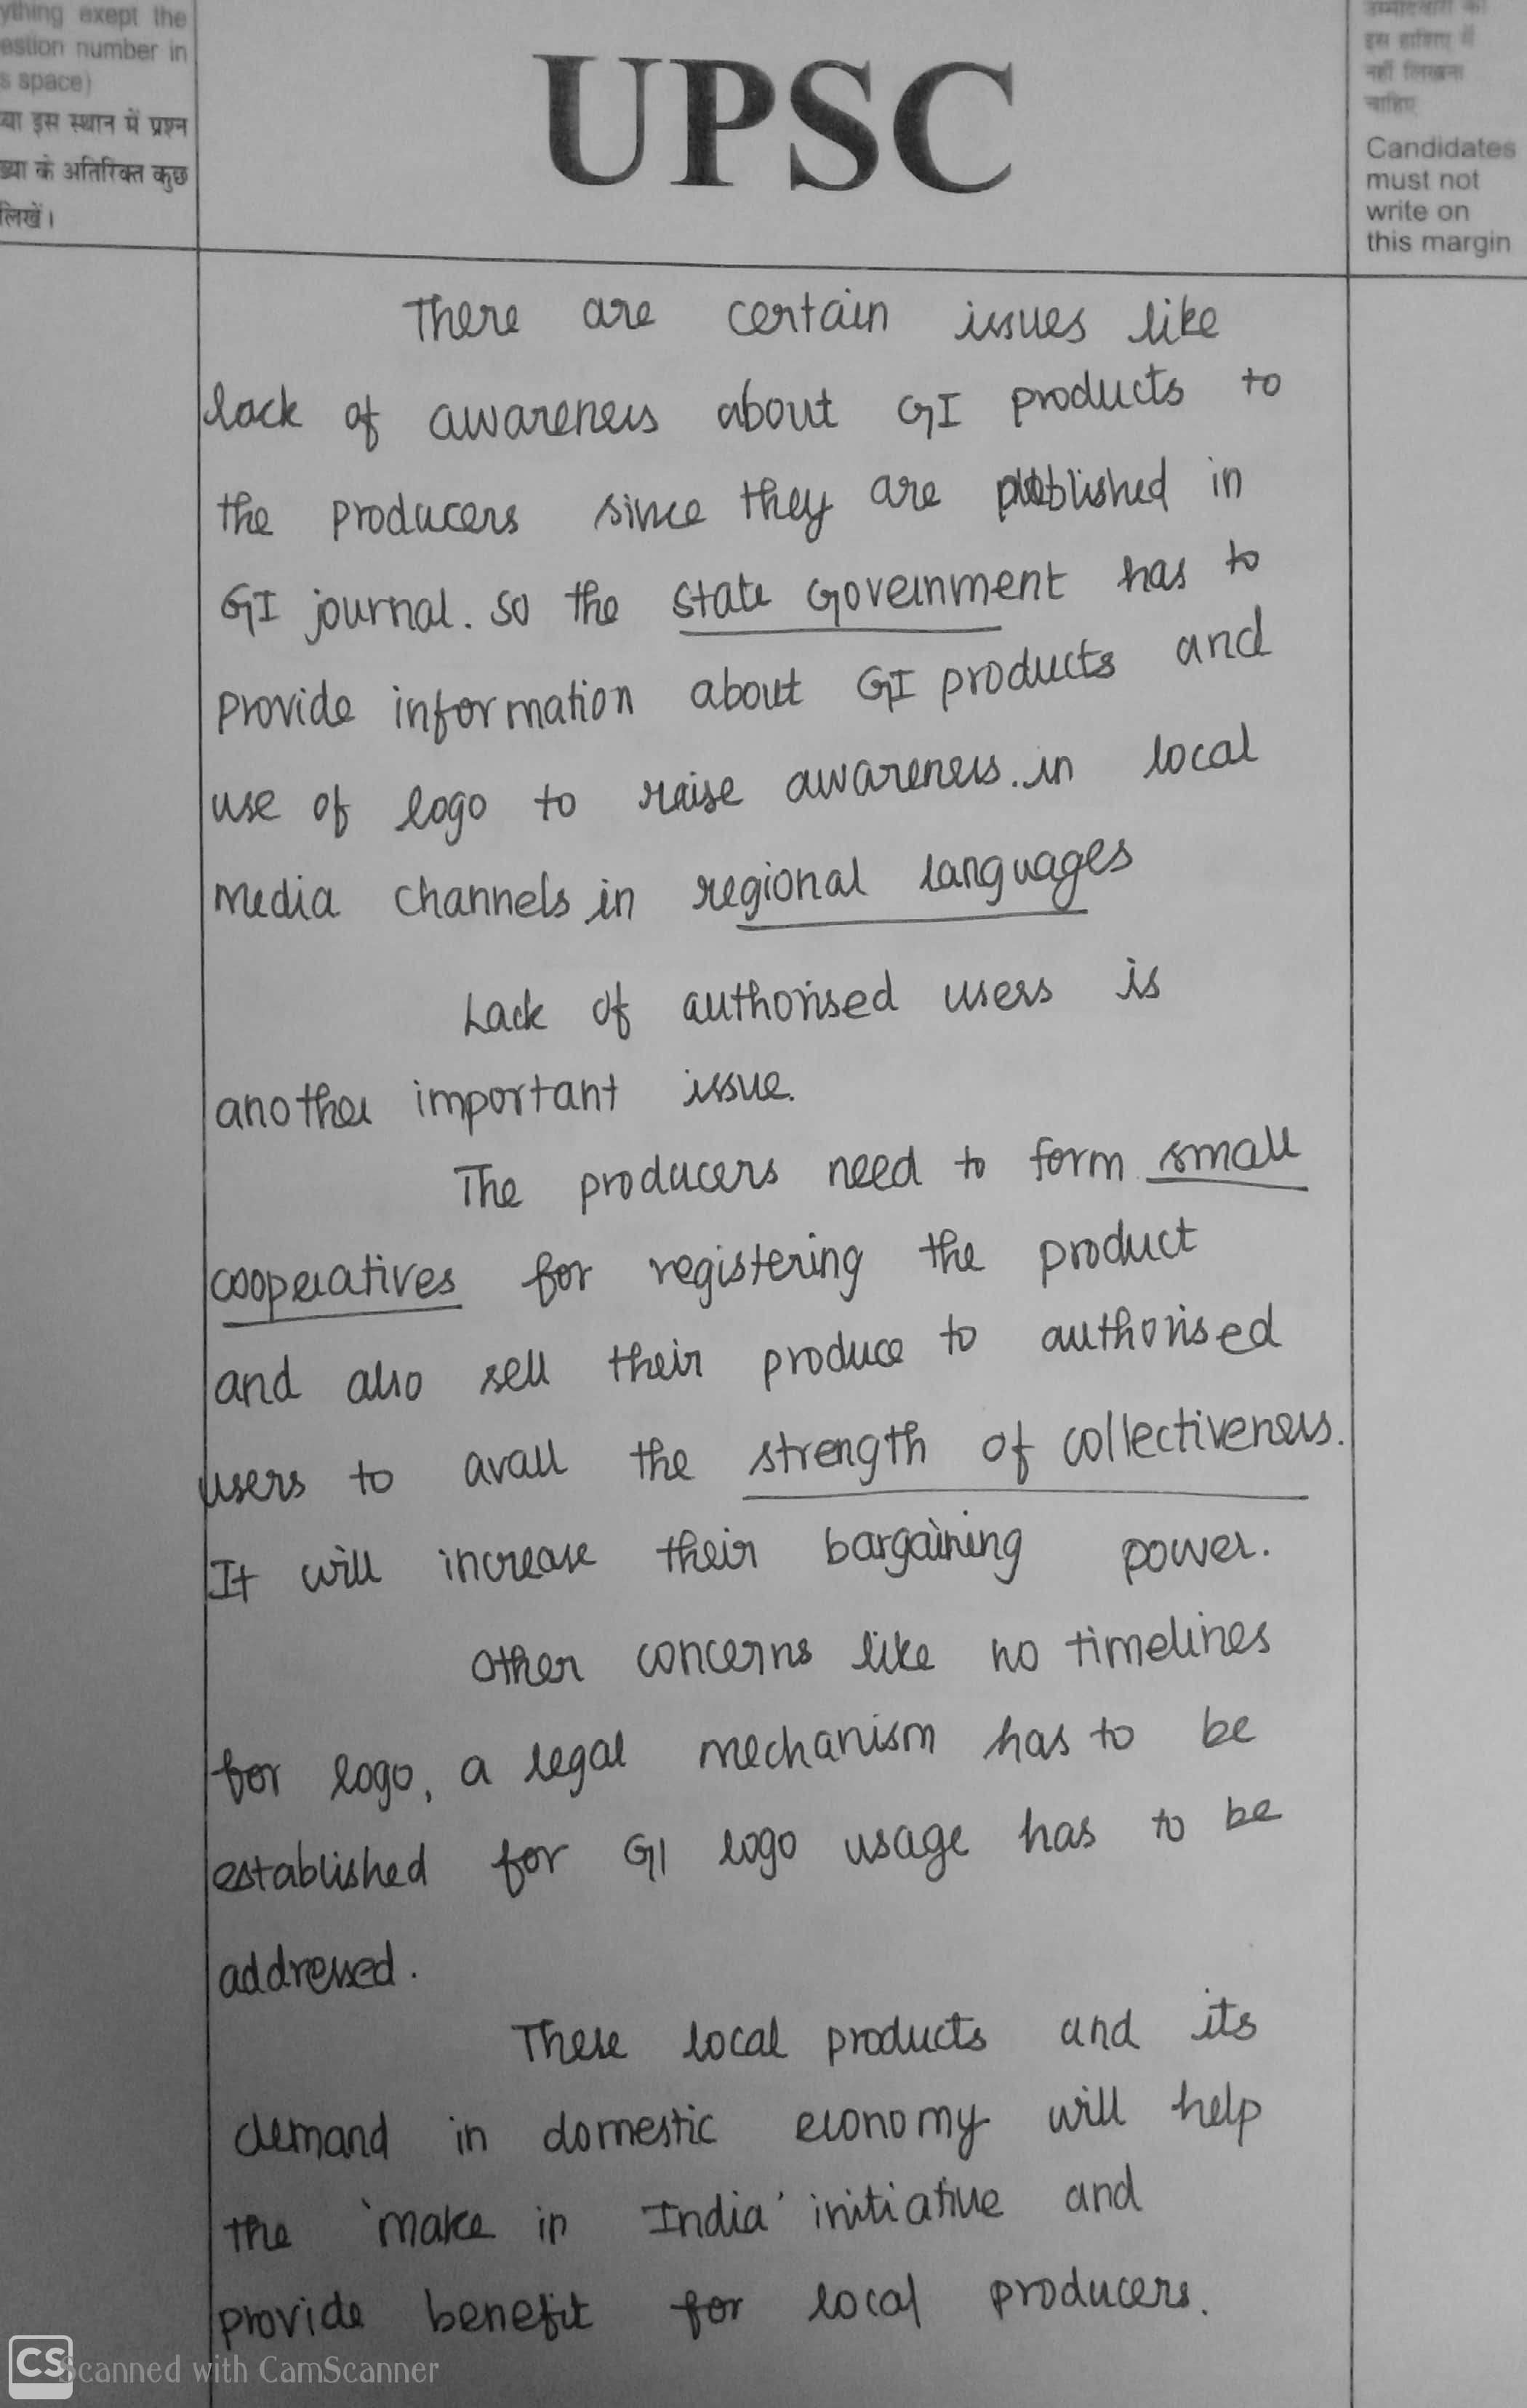 ything exept the
estion number in
s space)
या इस स्थान में प्रश्न
ख्या के अतिरिक्त कुछ
लिखें।
UPSC
उम्मीदवारों को
इस हाशिए में
नहीं लिखना
चाहिए
Candidates
must not
write on
this margin
There are certain issues like
lack of awareness about GI products to
the producers since they are published in
GI journal. So the state Government has to
provide information about GI products and
use of logo to raise awareness. in local
media channels in regional languages
Lack of authorised users is
another important issue.
The producers need to form small
cooperatives for registering the product
and also sell their produce to authorised
users to avail the strength of collectiveness.
It will increase their bargaining power.
Other concerns like no timelines
for logo, a legal mechanism has to be
established for GI logo usage has to be
addressed.
These local products and its
demand in domestic economy will help
the 'make in India' initiative and
provide benefit for local producers.
CS Scanned with CamScanner